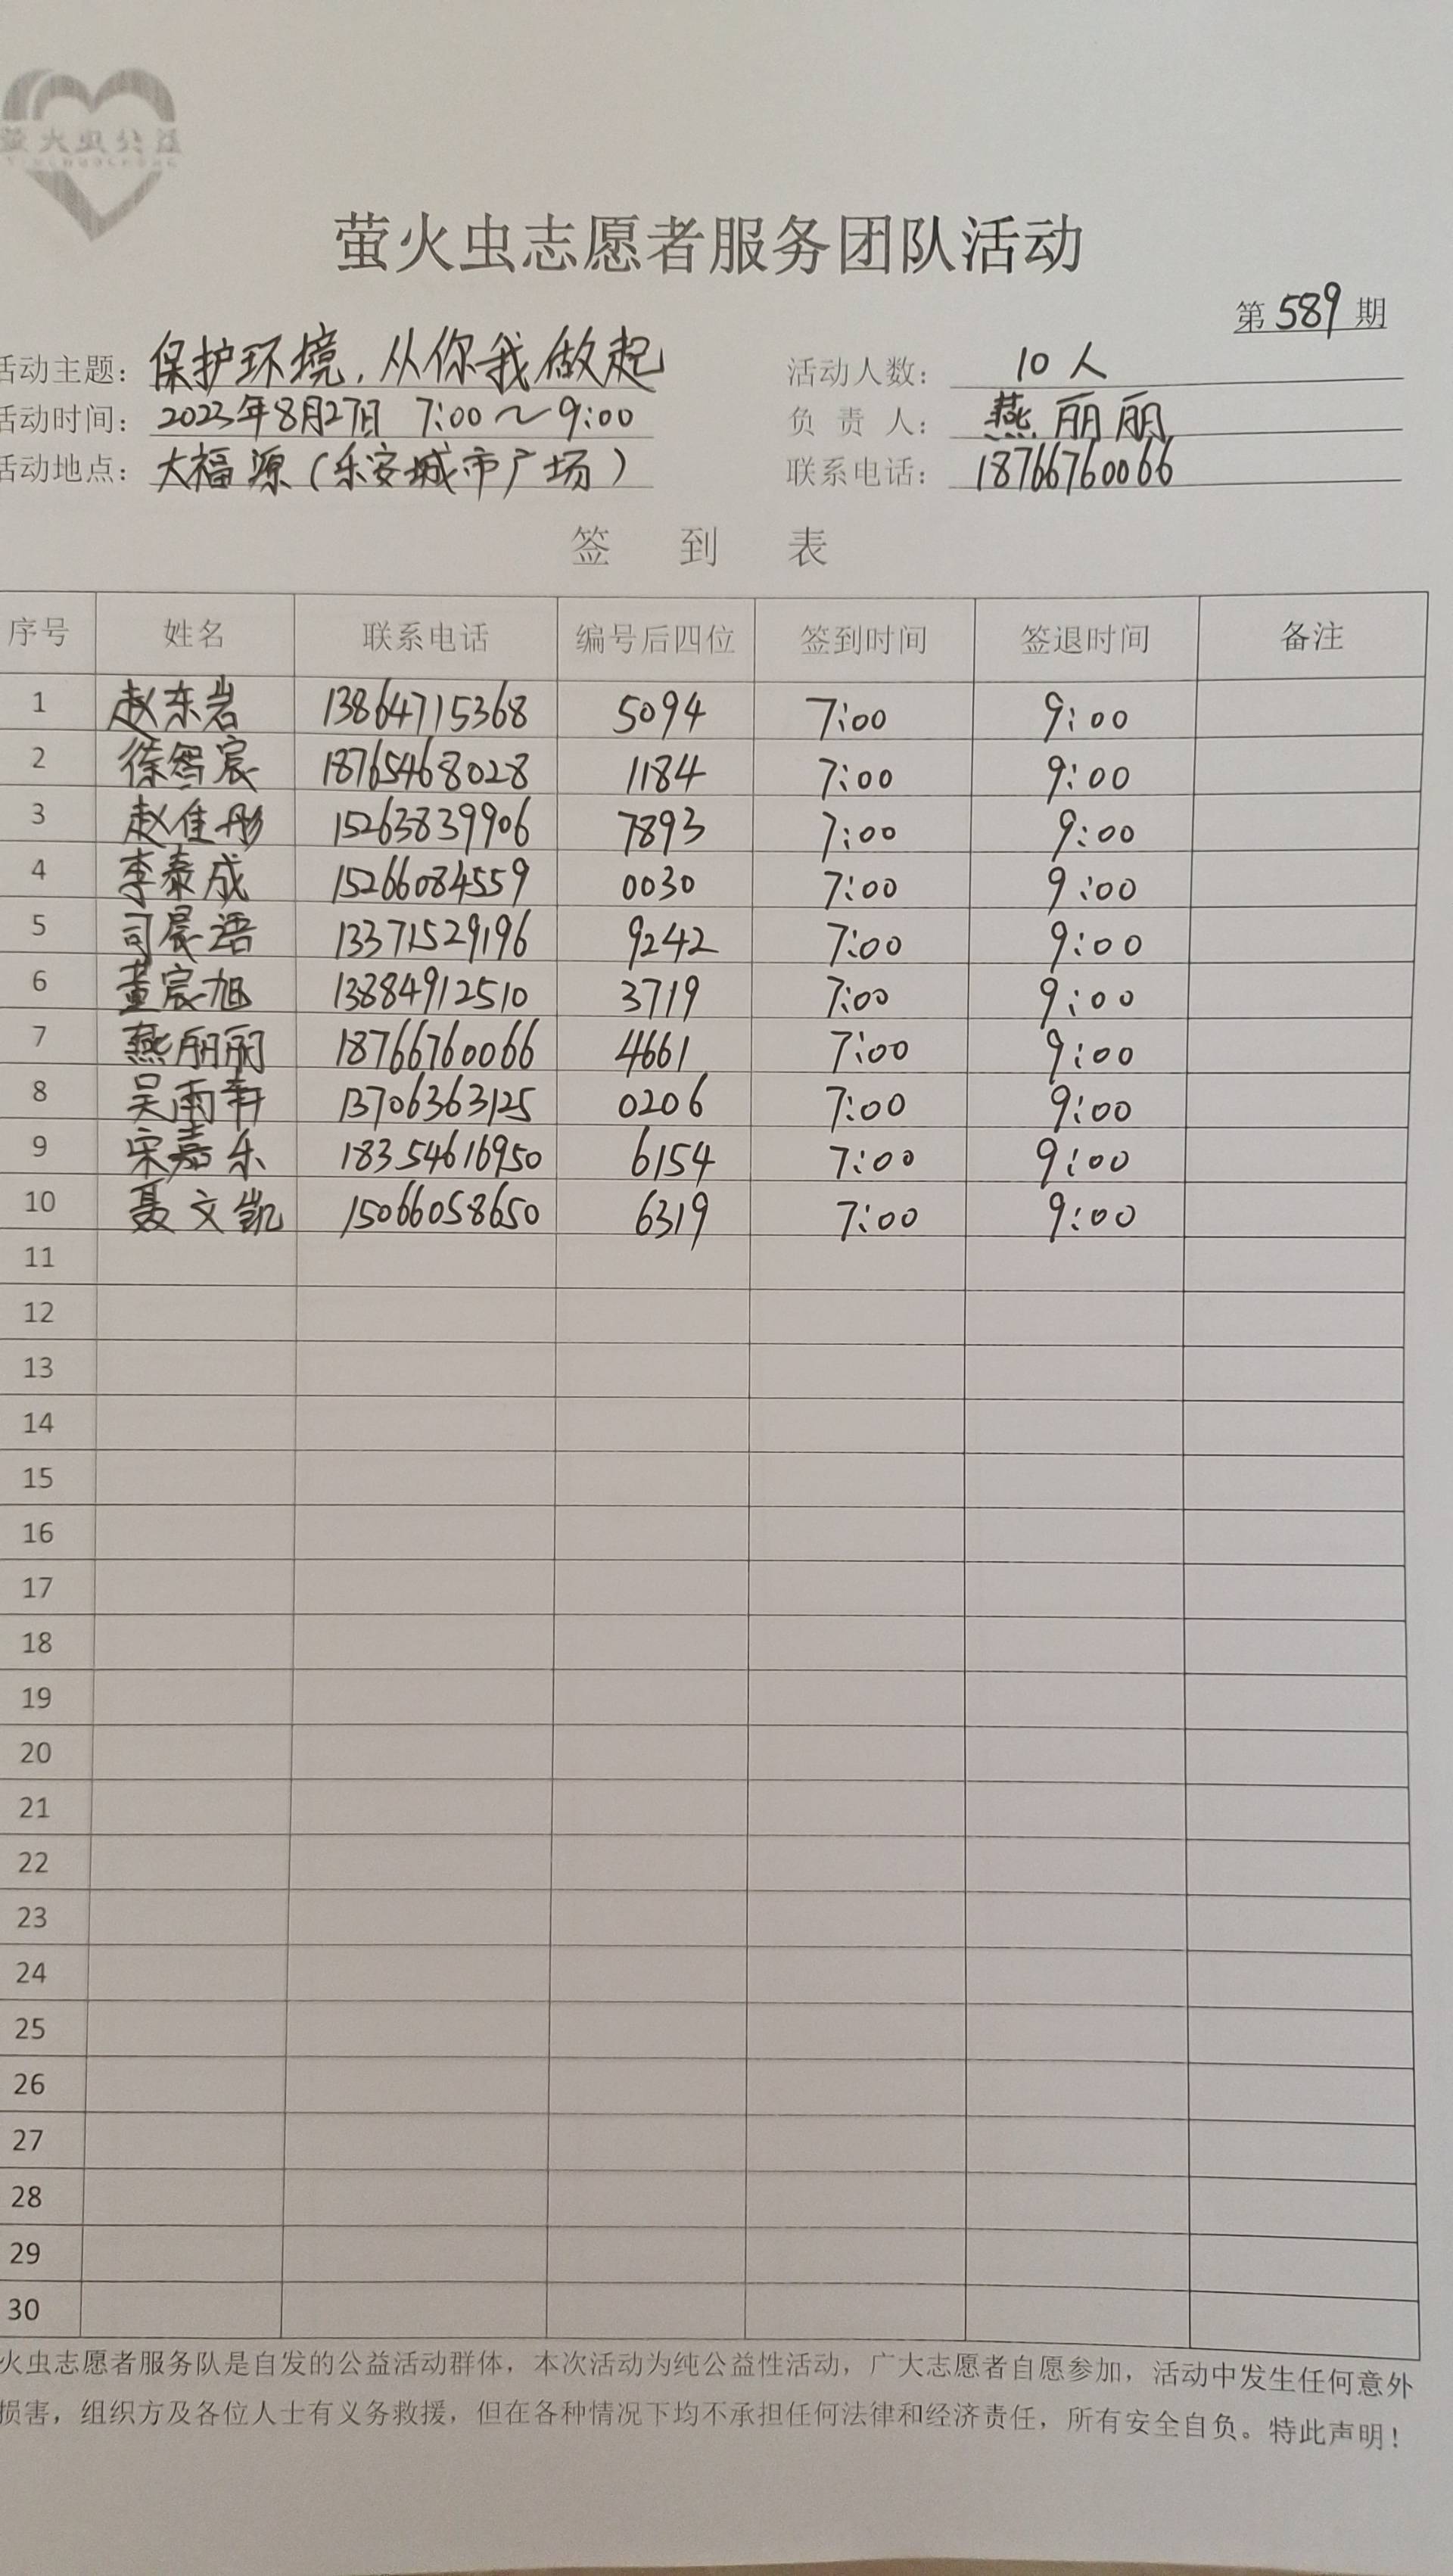 萤火虫公益
萤火虫志愿者服务团队活动
第 589 期
活动主题：保护环境，从你我做起 活动人数：10人
活动时间：2023年8月27日 7:00～9:00 负责人：燕丽丽
活动地点：大福源（乐安城市广场） 联系电话：18766760066
签到表
序号 姓名 联系电话 编号后四位 签到时间 签退时间 备注
1 赵东岩 13864715368 5094 7:00 9:00
2 徐智宸 18765468028 1184 7:00 9:00
3 赵佳彤 15263839906 7893 7:00 9:00
4 李泰成 15266084559 0030 7:00 9:00
5 司晨语 13371529196 9242 7:00 9:00
6 董宸旭 13884912510 3719 7:00 9:00
7 燕丽丽 18766760066 4661 7:00 9:00
8 吴雨轩 13706363125 0206 7:00 9:00
9 宋嘉乐 18354616950 6154 7:00 9:00
10 聂文凯 15066058650 6319 7:00 9:00
11
12
13
14
15
16
17
18
19
20
21
22
23
24
25
26
27
28
29
30
火虫志愿者服务队是自发的公益活动群体，本次活动为纯公益性活动，广大志愿者自愿参加，活动中发生任何意外
损害，组织方及各位人士有义务救援，但在各种情况下均不承担任何法律和经济责任，所有安全自负。特此声明！